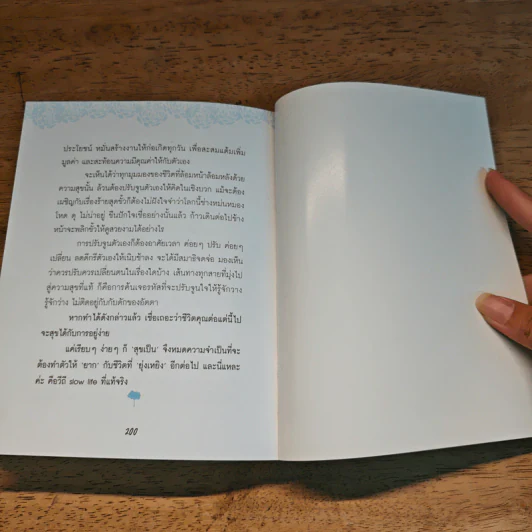 ประโยชน์ หมั่นสร้างงานให้ก่อเกิดทุกวัน เพื่อสะสมแต้มเพิ่ม
มูลค่า และสะท้อนความมีคุณค่าให้กับตัวเอง
จะเห็นได้ว่าทุกมุมมองของชีวิตที่ล้อมหน้าล้อมหลังด้วย
ความสุขนั้น ล้วนต้องปรับจูนตัวเองให้คิดในเชิงบวก แม้จะต้อง
เผชิญกับเรื่องร้ายสุดขั้วก็ต้องไม่ฝังใจจำว่าโลกนี้ช่างหม่นหมอง
โหด ดุ ไม่น่าอยู่ ขืนปักใจเชื่ออย่างนั้นแล้ว ก้าวเดินต่อไปข้าง
หน้าจะพลิกขั้วให้ดูสวยงามได้อย่างไร
การปรับจูนตัวเองก็ต้องอาศัยเวลา ค่อยๆ ปรับ ค่อยๆ
เปลี่ยน ลดดีกรีตัวเองให้เนิบช้าลง จะได้มีสมาธิจดจ่อ มองเห็น
ว่าควรปรับควรเปลี่ยนตนในเรื่องใดบ้าง เส้นทางทุกสายที่มุ่งไป
สู่ความสุขที่แท้ ก็คือการค้นเจอรหัสที่จะปรับจูนใจให้รู้จักวาง
รู้จักว่าง ไม่ติดอยู่กับกับดักของอัตตา
หากทำได้ดังกล่าวแล้ว เชื่อเถอะว่าชีวิตคุณต่อแต่นี้ไป
จะสุขได้กับการอยู่ง่าย
แค่เรียบๆ ง่ายๆ ก็ 'สุขเป็น' จึงหมดความจำเป็นที่จะ
ต้องทำตัวให้ 'ยาก' กับชีวิตที่ 'ยุ่งเหยิง' อีกต่อไป และนี่แหละ
ค่ะ คือวิถี slow life ที่แท้จริง
200